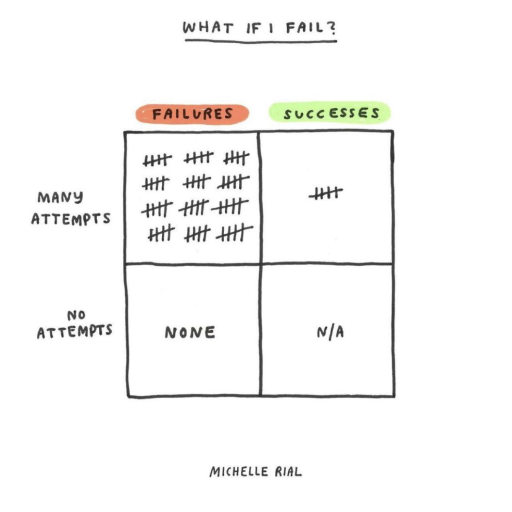 WHAT IF I FAIL?
FAILURES SUCCESSES
MANY
ATTEMPTS
NO
ATTEMPTS
NONE N/A
MICHELLE RIAL